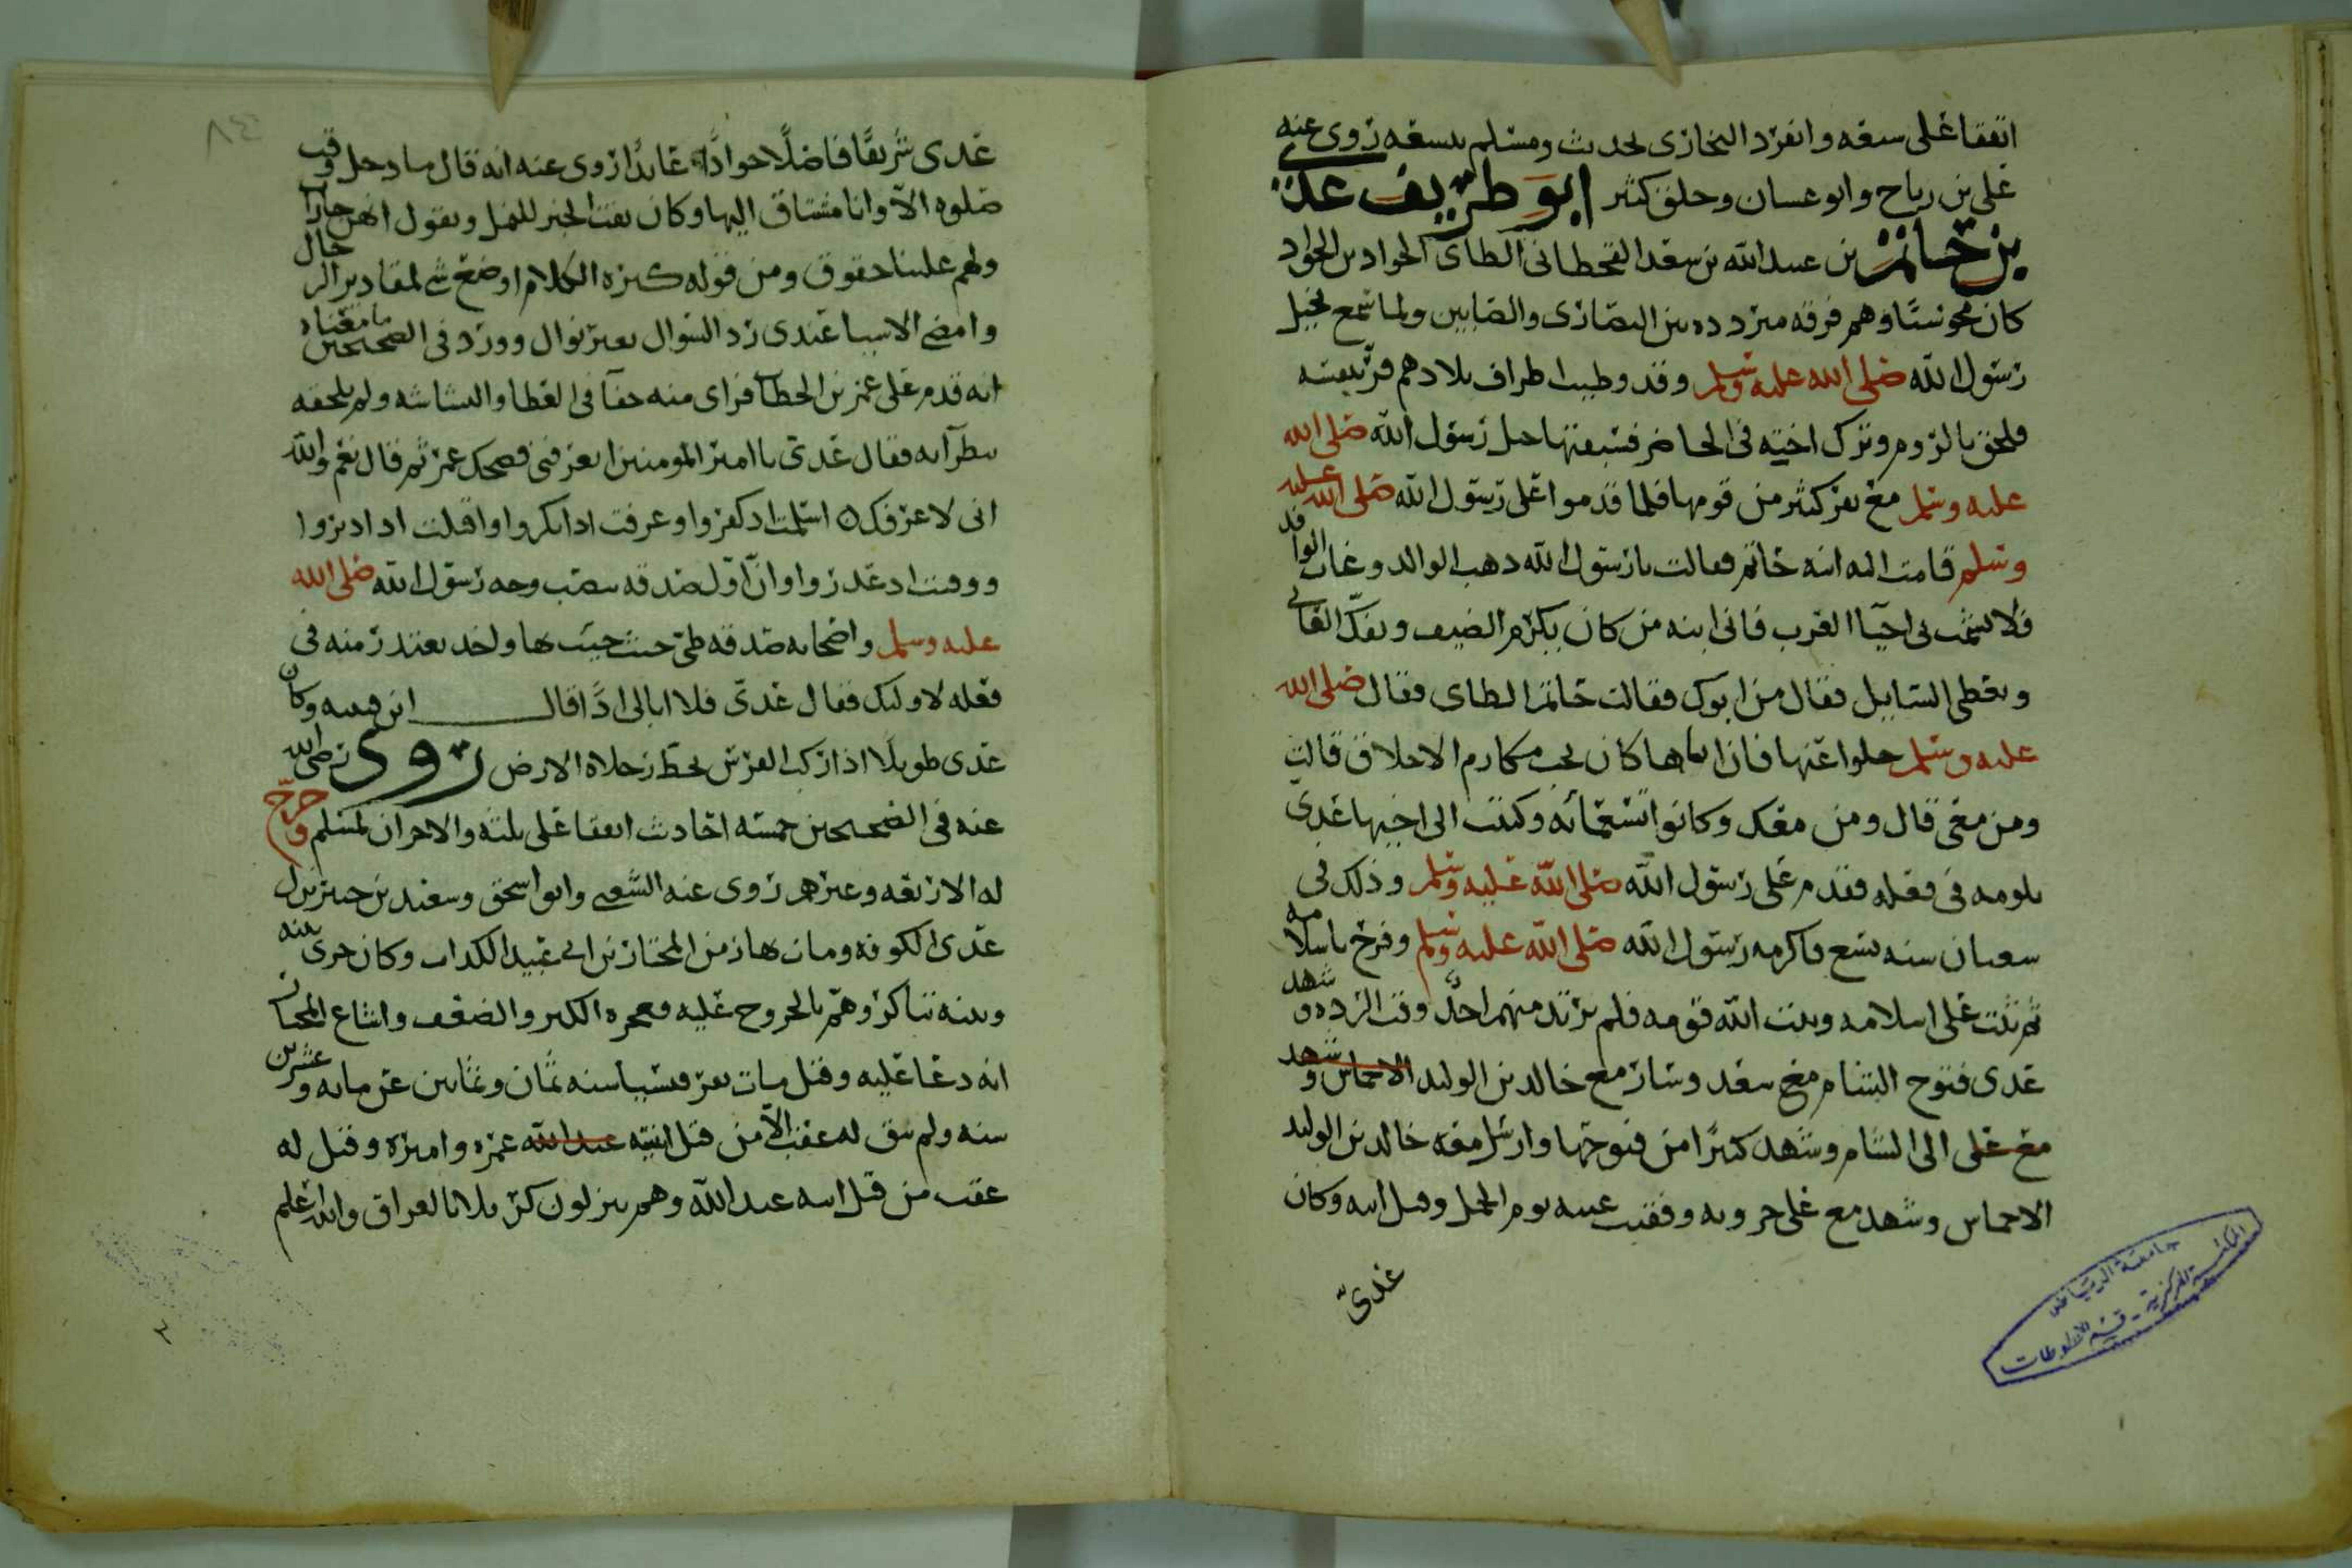 اتفقا على سبعه وانفرد البخارى بحديث ومسلم بتسعه روى عنه
على بن رباح وابو عسان وخلق كثير ابو طريف عدى
بن حاتم بن عبد الله بن سعد القحطانى الطاى الجواد بن الجواد
كان مجوسيا وهم فرقه متردده بين النصارى والصابين ولما سمع بخيل
رسول الله صلى الله عليه وسلم وقد وطيت اطراف بلادهم فر بنفسه
فلحق بالروم وترك اخيته فى الحاضر فسبقتها خيل رسول الله صلى الله
عليه وسلم مع نفر كثير من قومها فلما قدموا على رسول الله صلى الله عليه
وسلم قامت اليه ابنه حاتم فقالت يا رسول الله ذهب الوالد وغاب الوافد
فلا تشمت بى احيا العرب فانى ابنه من كان يكرم الضيف ويفك العانى
ويعطى السايل فقال من ابوك فقالت حاتم الطاى فقال صلى الله
عليه وسلم خلوا عنها فان اباها كان يحب مكارم الاخلاق قالت
ومن معى قال ومن معك وكانوا تسعمائه وكتبت الى اخيها عدى
تلومه فى فعله فقدم على رسول الله صلى الله عليه وسلم وذلك فى
شعبان سنه تسع فاكرمه رسول الله صلى الله عليه وسلم وفرح باسلامه
ثم ثبت على اسلامه وثبت الله قومه فلم يرتد منهم احد وقت الرده وشهد
عدى فتوح الشام مع سعد وسار مع خالد بن الوليد الاخماس وشهد
مع على الى الشام وشهد كثيرا من فتوحها وارسل معه خالد بن الوليد
الاخماس وشهد مع على حروبه وفقيت عينه يوم الجمل وقتل ابنه وكان
عدى
عدى شريفا فاضلا جوادا عابدا روى عنه انه قال ما دخل وقت
صلوه الا وانا مشتاق اليها وكان يفت الخبز للنمل ويقول انهن جارات
ولهم علينا حقوق ومن قوله كثره الكلام اوضع شى لمقادير الرجال
وامضى الاشيا عندى رد السوال بغير نوال وورد فى الصحيحين ما معناه
انه قدم على عمر بن الخطاب فراى منه جفا فى العطا والبشاشه ولم يلحقه
بنظرايه فقال عدى يا امير المومنين اتعرفنى فضحك عمر ثم قال نعم والله
انى لاعرفك اسلمت اذ كفروا وعرفت اذ انكروا واقبلت اذ ادبروا
ووفيت اذ غدروا وان اول صدقه بيضت وجه رسول الله صلى الله
عليه وسلم واصحابه صدقه طى حيث جيت بها واخذ يعتذر منه فى
فعله لاوليك فقال عدى فلا ابالى اذا قال ابن قتيبه وكان
عدى طويلا اذا ركب الفرس تخط رجلاه الارض روى رضى الله
عنه فى الصحيحين خمسه احاديث اتفقا على ثلثه والاخران لمسلم وخرج
له الاربعه وغيرهم روى عنه الشعبى وابو اسحق وسعيد بن جبير نزل
عدى الكوفه ومات بها زمن المختار بن ابى عبيد الكذاب وكان جرى بينه
وبينه تناكر وهم بالخروج عليه فعجزه الكبر والضعف واشاع المختار
انه دعا عليه وقتل مات نفر فسيبا سنه ثمان وثمانين عن مايه وعشرين
سنه ولم يبق له عقب الا من قبل ابنتيه عبد الله عمره واميره وقيل له
عقب من قبل ابنه عبد الله وهم ينزلون كربلا بالعراق والله اعلم
جامعة الرياض
المكتبة المركزية - قسم المخطوطات
٨٤